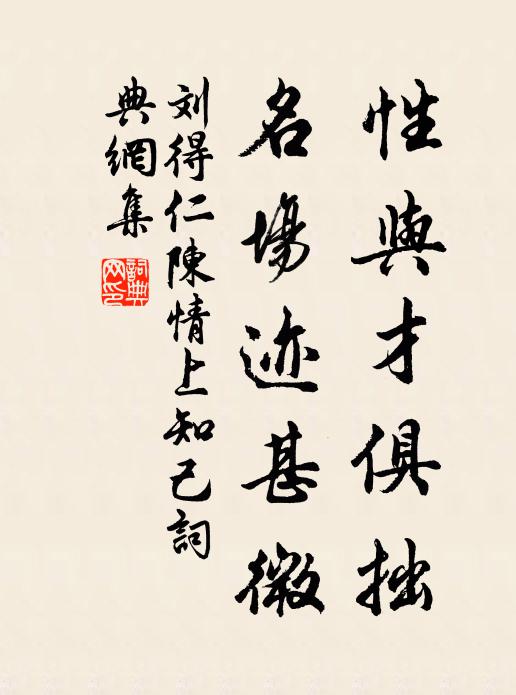 性與才俱拙
名場迹甚微
刘得仁陳情上知己詞
典網集
詞典網印